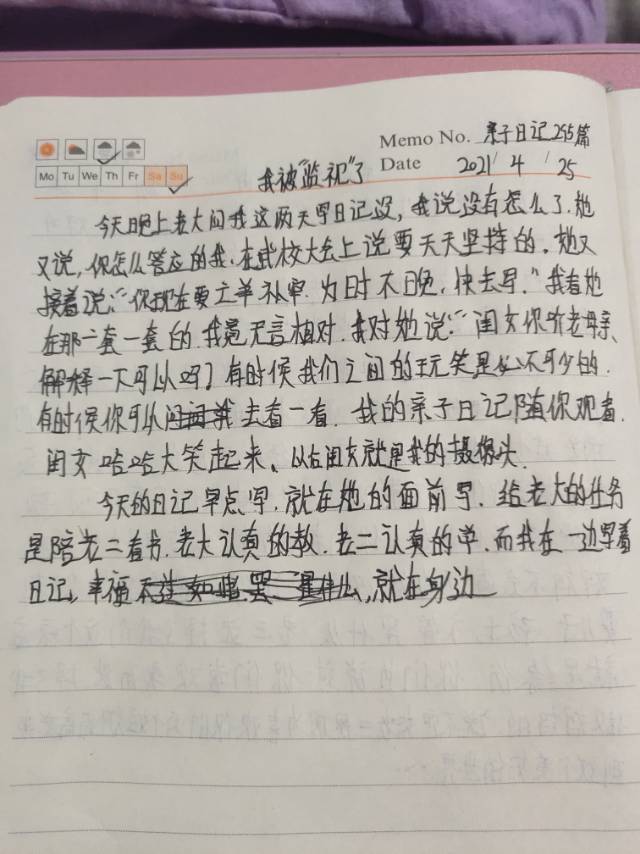 Memo No. 亲子日记255篇
Mo Tu We Th Fr Sa Su
我被"监视"了 Date 2021/4/25
今天晚上老大问我这两天写日记没,我说没有怎么了.她
又说,你怎么答应的我.在武校大会上说要天天坚持的.她又
接着说:"你现在要立羊补牢.为时不晚,快去写."我看她
在那一套一套的.我竟无言相对.我对她说:"闺女你听老母亲、
解释一下可以吗?有时候我们之间的玩笑是必不可少的.
有时候你可以去看一看.我的亲子日记随你观看.
闺女哈哈大笑起来、以后闺女就是我的摄像头.
今天的日记早点写.就在她的面前写.给老大的任务
是陪老二看书.老大认真的教.老二认真的学.而我在一边写着
日记,幸福,就在身边